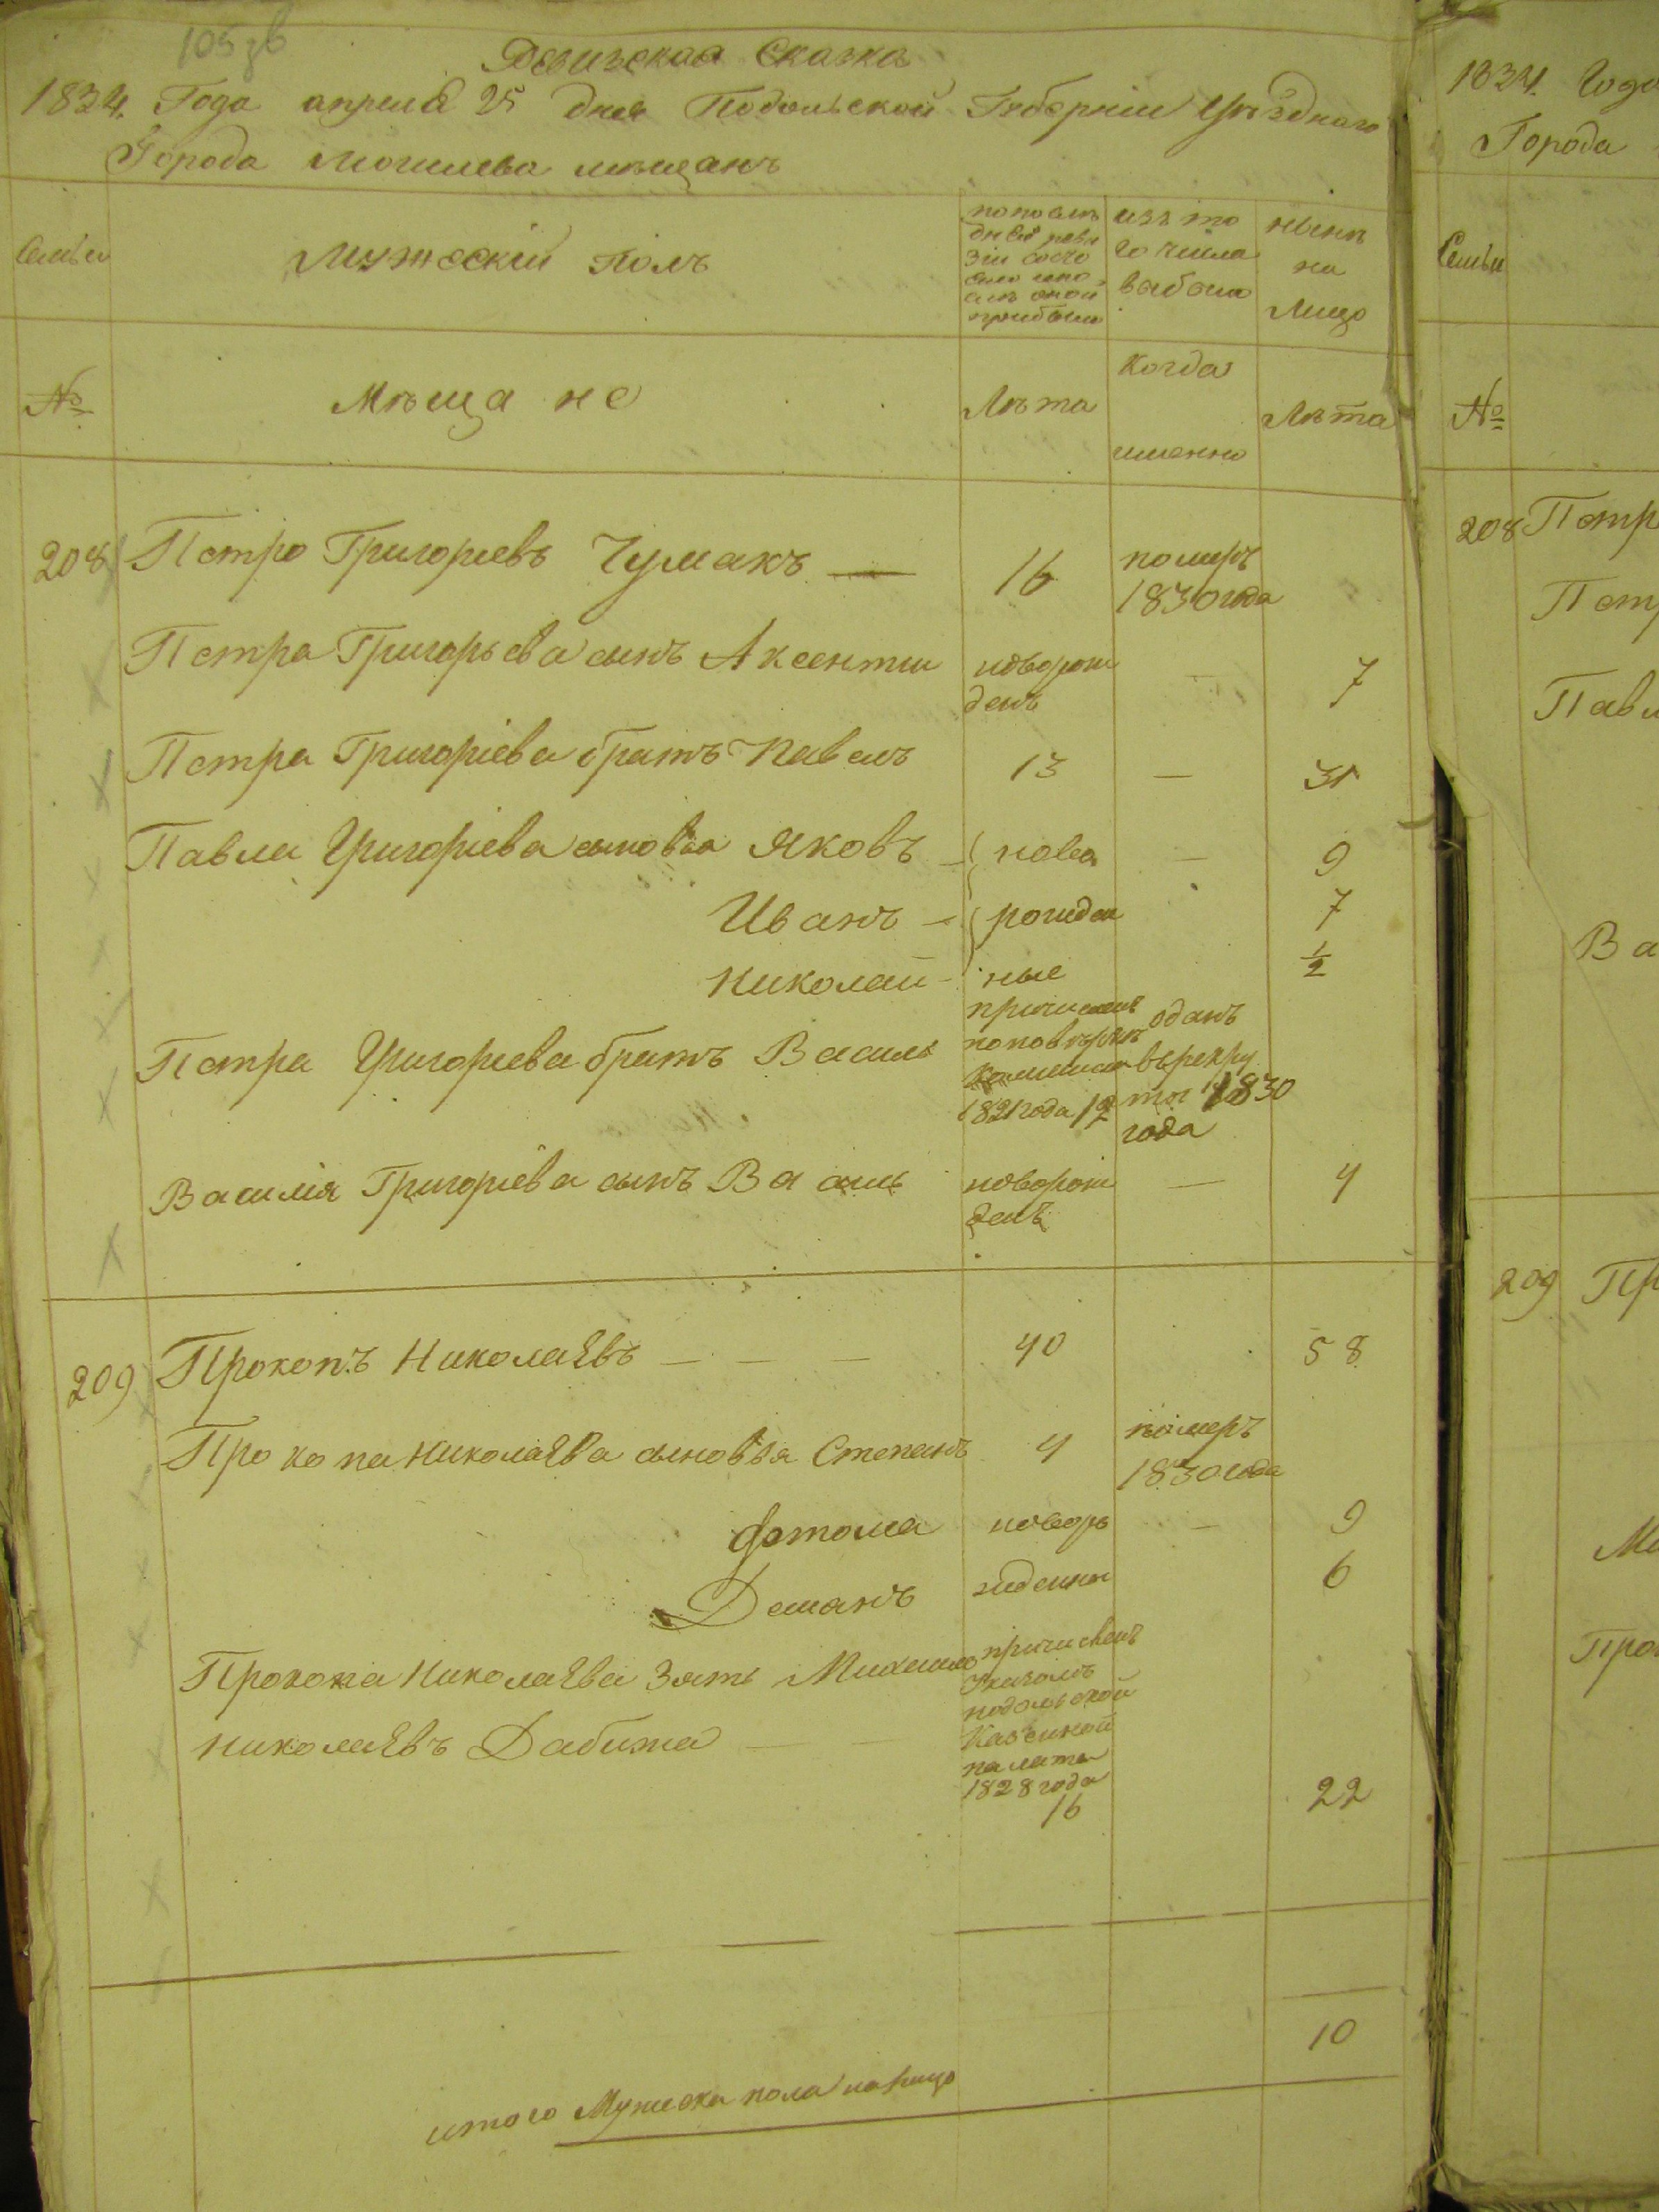 105 зв
Ревизская Сказка
1834. Года апреля 25 дня Подольской Губернии Уѣзднаго
Города Могилева мѣщанъ
Семьи
Мужескій Полъ
по послѣ
дней реви
зіи состо
яло и по
слѣ оной
прибыло
изъ то
го числа
выбыло
нынѣ
на
Лицо
№
Мѣща не
Лѣта
Когда
именно
Лѣта
208 Петро Григорьевъ Чумакъ — 16 померъ
1830 года
Петра Григорьева сынъ Аксентии новорож
денъ — 7
Петра Григоріева братъ Павелъ 13 — 31
Павла Григоріева сыновья Яковъ — новоя — 9
Иванъ — рожден 7
Николай - ные ½
Петра Григорьева братъ Василь причисленъ
по повѣркѣ
1821 года 12
оданъ
в рекру
ты 1830
года
Василія Григоріева сынъ Василь новорож
денъ — 4
209 Прокопъ Николаевъ — — — 40 58
Прокопа Николаева сыновья Степанъ 4 померъ
1830 года
новоро — 9
Демянъ жденны 6
Прокопа Николаева Зять Михаило
Николаевъ Дабижа — —
причисленъ
Указомъ
подольской
Казенной
палаты
1828 года
16 22
10
итого Мужеска пола на лицо
1834. Года
Города
Семьи
№
208 Петр
Петр
Павл
Ва
209 Пр
Ми
Про